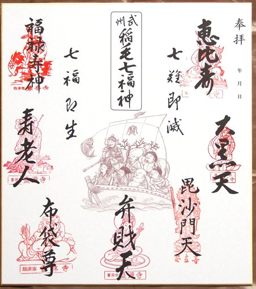 奉拝
年 月 日
恵比寿
大黒天
毘沙門天
七難即滅
武州
稲毛七福神
弁財天
七福即生
福禄寿神
寿老人
布袋尊